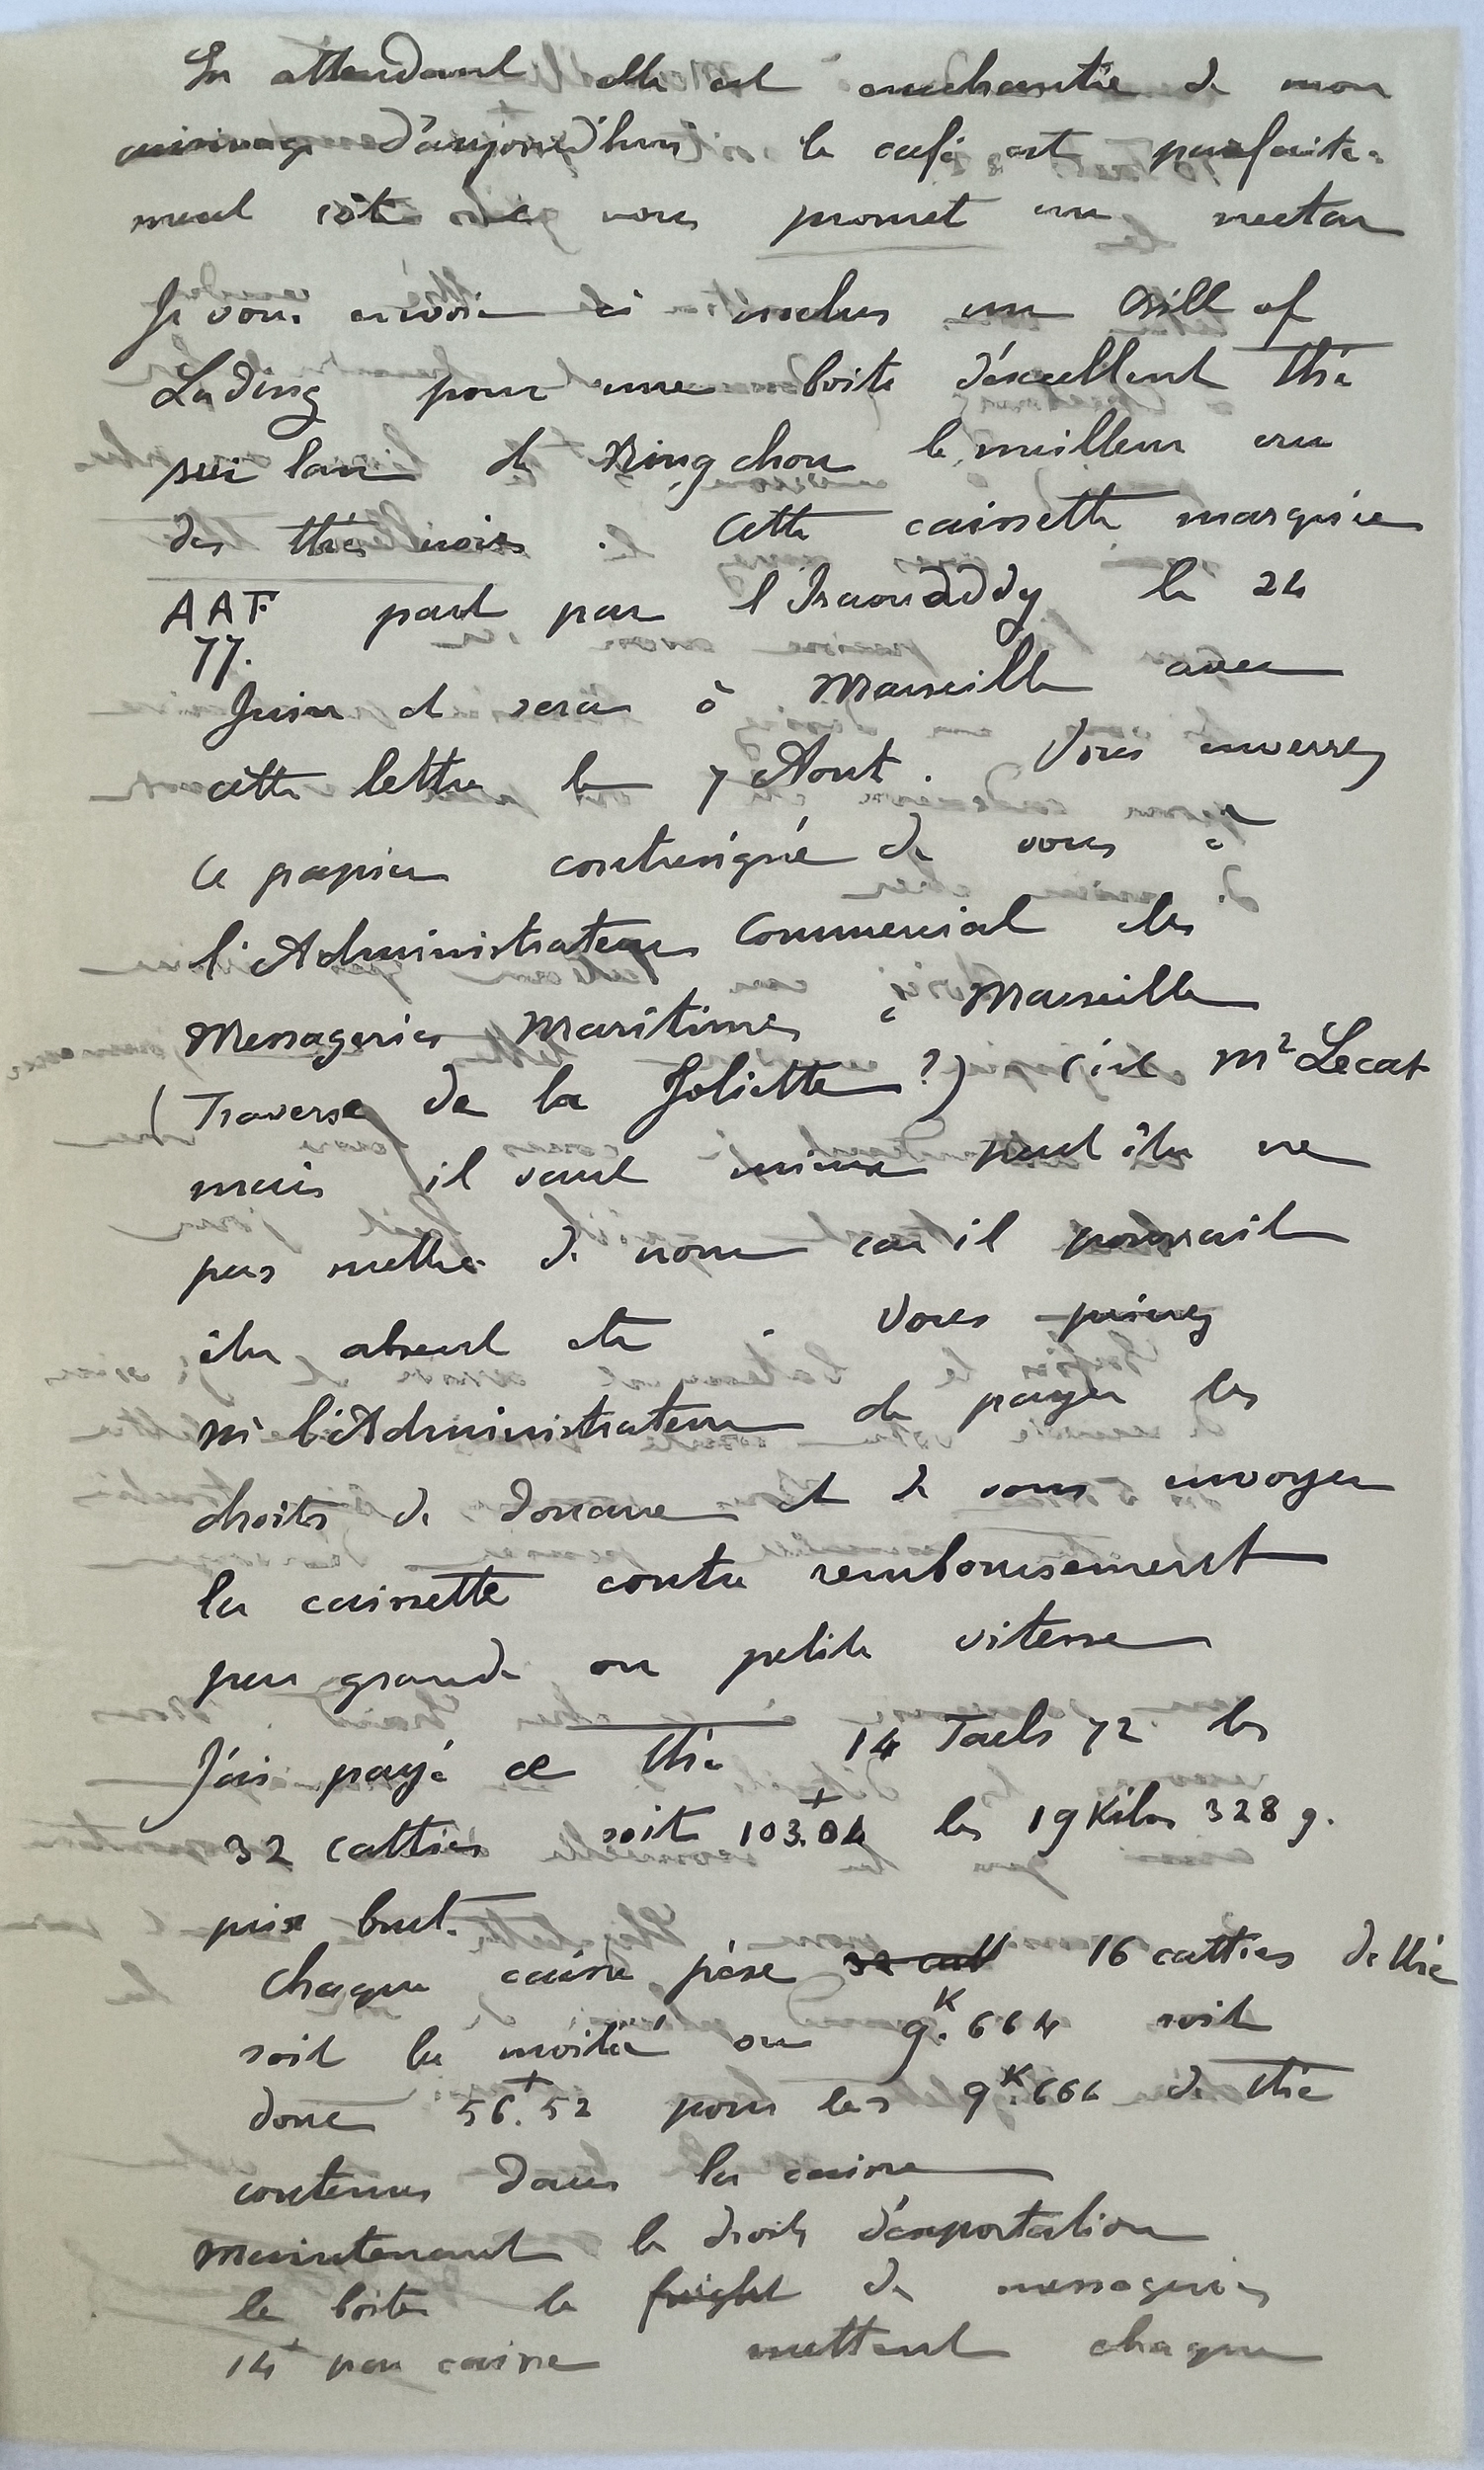 En attendant elle est enchantée de mon
mariage d'aujourd'hui le café est parfaite-
ment rôti et nous promet un nectar
Je vous envoie ci inclus un Bill of
Lading pour une boite d'excellent thé
sui lan de Ning chou le meilleur cru
des thés noirs. Cette caissette marquée
AAF part par l'Iraouaddy le 24
77.
Juin et sera à Marseille avec
cette lettre le 7 Aout. Vous enverrez
ce papier contresigné de vous à
l'Administrateur Commercial des
Messageries Maritimes à Marseille
(Traverse de la Joliette ?) c'est Mr Lecat
mais il vaut mieux peut être ne
pas mettre de nom car il pourrait
être absent etc. Vous prierez
M l'Administrateur de payer les
droits de douane et de vous envoyer
la caissette contre remboursement
par grande ou petite vitesse
J'ai payé ce thé 14 Taels 72 les
32 catties soit 103.04 les 19 Kilos 328 g.
prix brut.
Chaque caisse pèse 32 catt 16 catties de thé
soit la moitié ou 9.K 664 soit
donc 56.52 pour les 9.K 664 de thé
contenus dans la caisse
Maintenant le droit d'exportation
la boite le freight de messageries
14 par caisse mettent chaque